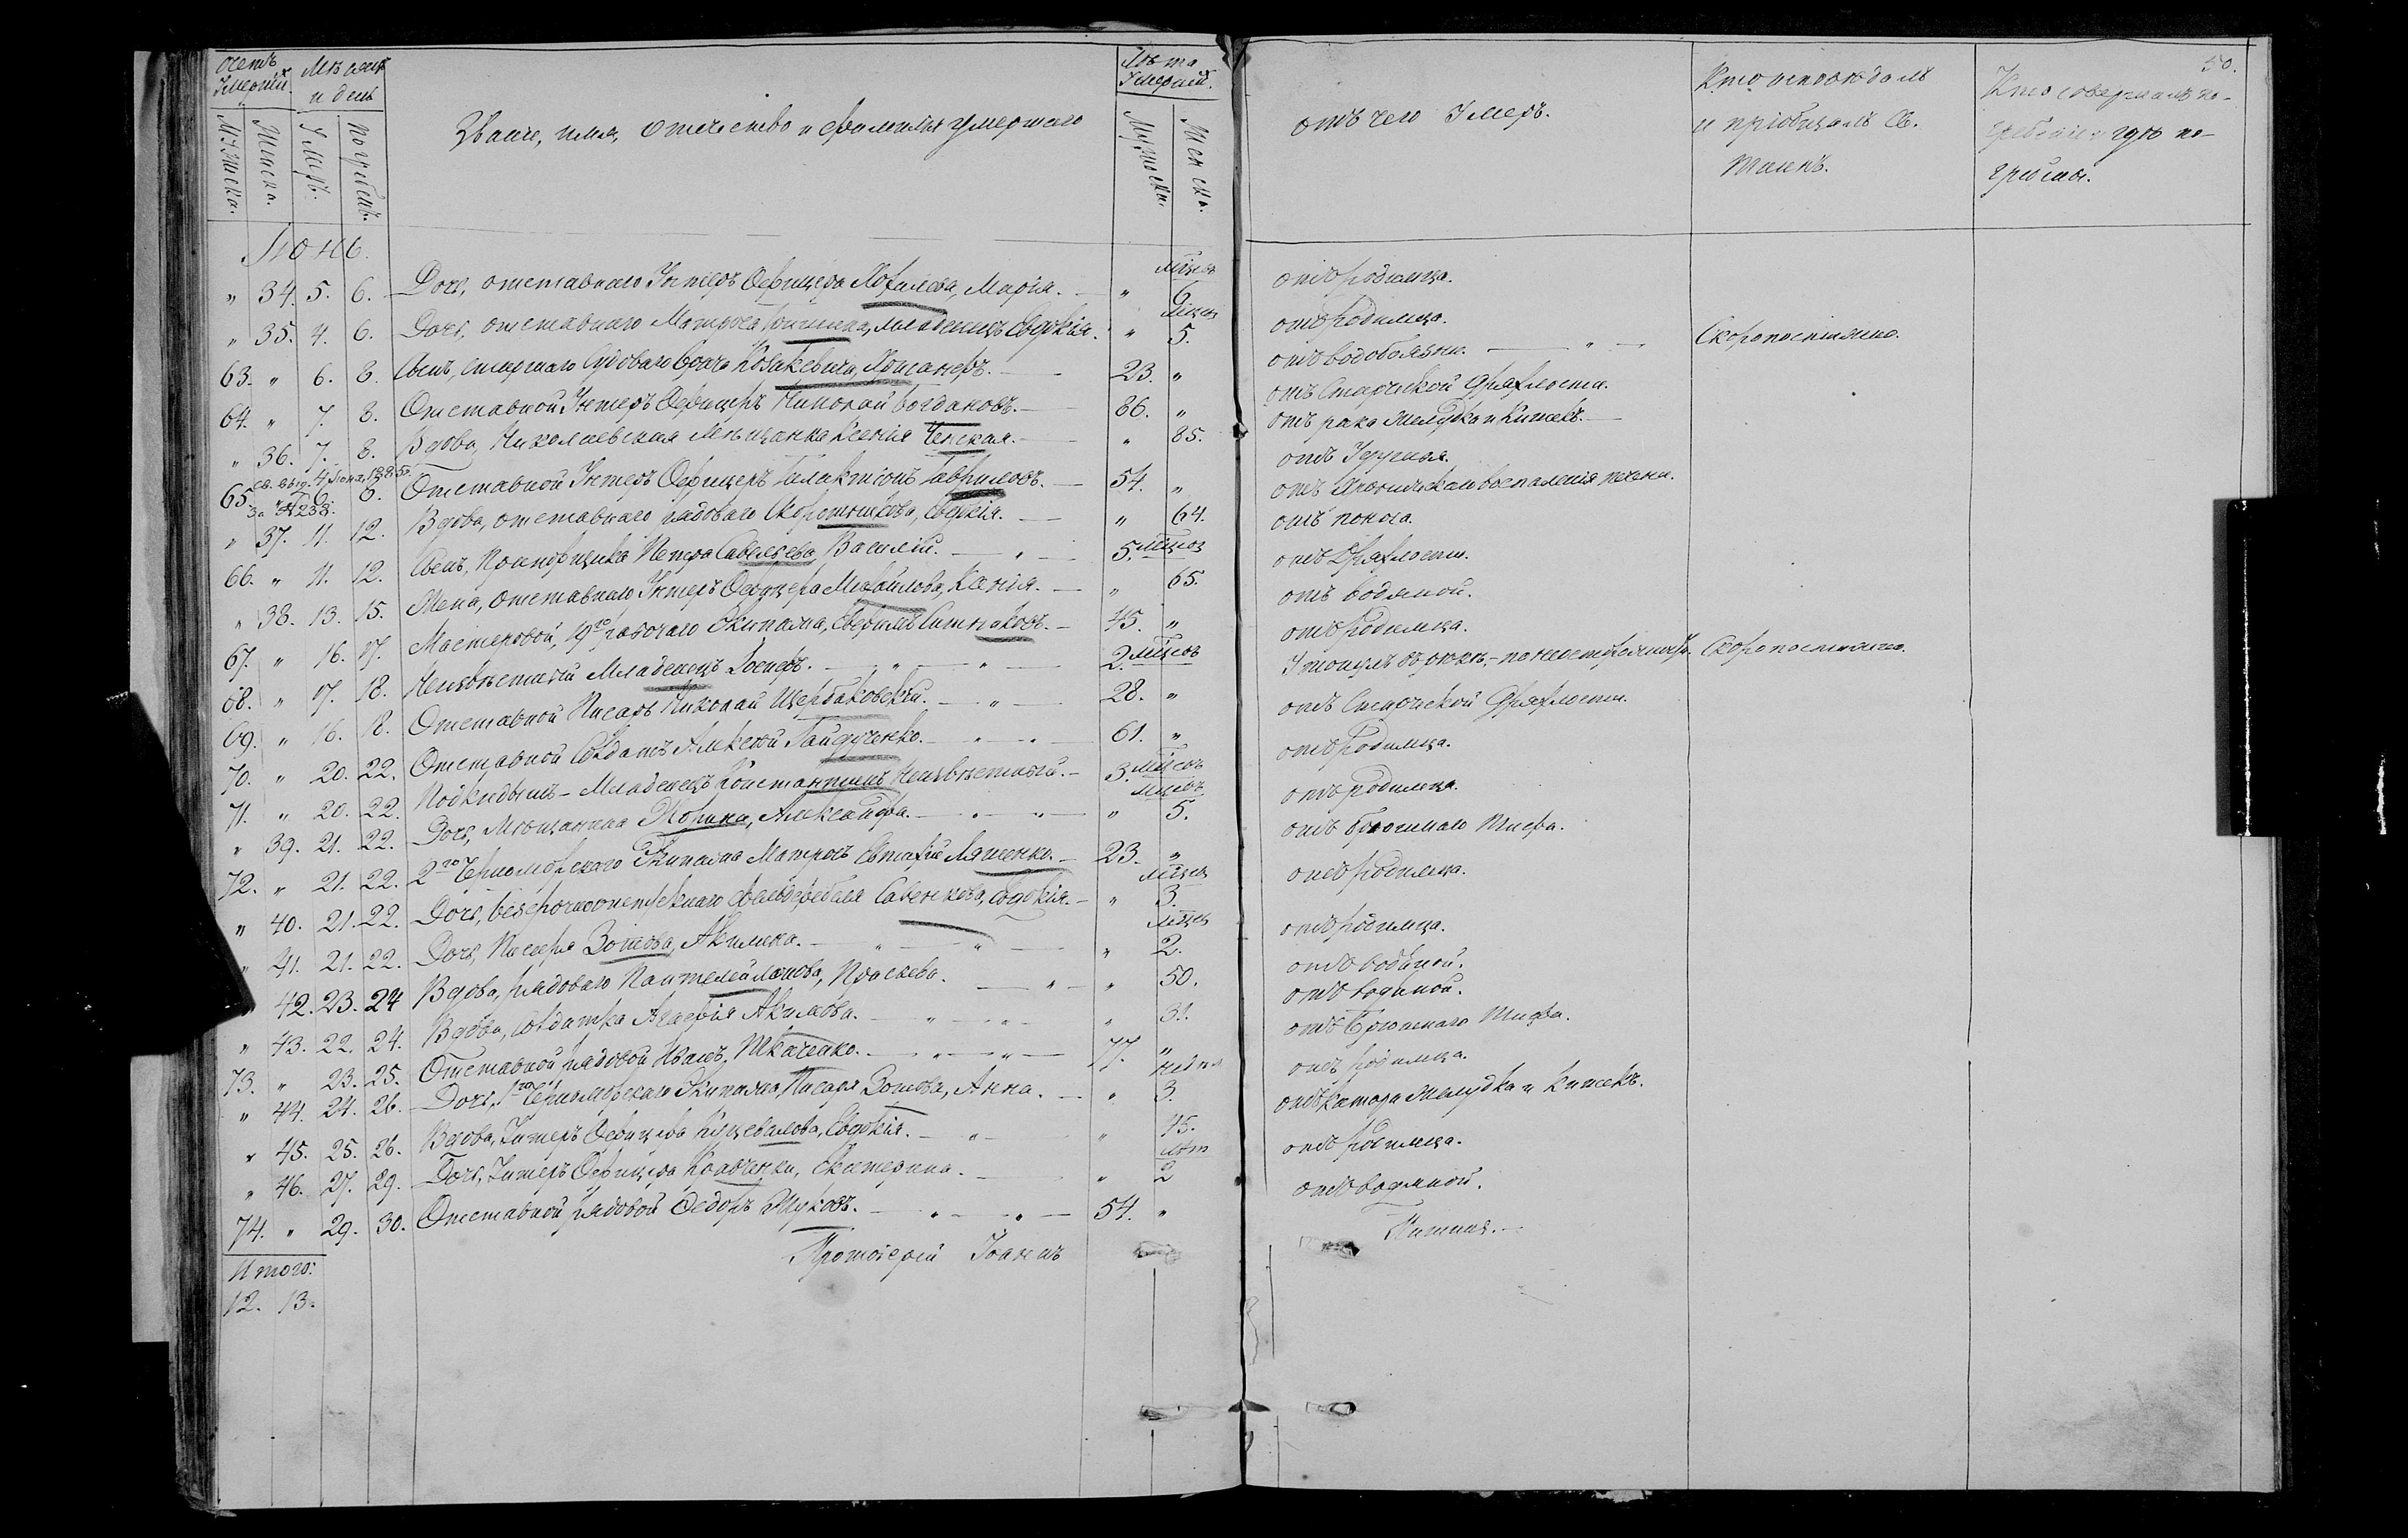 50.
Счетъ Умершихъ. Мѣсяцъ и день Званіе, имя, отчество и фамилія умершаго Лѣта Умершаго. отъ чего Умеръ. Кто исповѣдалъ и пріобщалъ Св. Таинъ. Кто совершалъ погребеніе и гдѣ погребены.
Мужска. Женска. Умеръ. Погребенъ. Мужска. Женска.
Іюнь.
" 34. 5. 6. Дочь, отставнаго Унтеръ Офицера, Марія. " 6 Мѣсцъ отъ родимца.
" 35. 4. 6. Дочь, отставнаго Матроса младенецъ Евдокія. " 5. Мѣсцъ отъ родимца.
63. " 6. 8. Сынъ, старшаго Судоваго Врача Козакевича, 23. " отъ водобоязни. Скоропостижно.
64. " 7. 8. Отставной Унтеръ Офицеръ Николай Богдановъ. 86. " отъ Старческой дряхлости.
" 36. 7. 8. Вдова, Николаевская Мѣщанка Ксенія " 85. отъ рака Желудка и Кишекъ.
св. выд. 4 Іюня 1885.
65. " 6. 8. Отставной Унтеръ Офицеръ Галактіонъ Гавриловъ. 54. " отъ
За № 238.
" 37. 11. 12. Вдова, отставнаго рядоваго Евдокія. " 64. отъ Хроническаго воспаленія печени.
66. " 11. 12. Сынъ, Прапорщика Петра Савельева, Василій. 5. Мѣсцъ отъ поноса.
" 38. 13. 15. Жена, отставнаго Унтеръ Офицера Михайлова, Ксенія. " 65. отъ Дряхлости.
67. " 16. 17. Мастеровой, 19го рабочаго Экипажа, Ефимъ Ситниковъ. 45. " отъ водяной.
68. " 17. 18. Неизвѣстный Младенецъ Іосифъ. 2. Мѣсцъ отъ Родимца.
69. " 16. 18. Отставной Писарь Николай Щербаковскій. 28. " Утонулъ въ рѣкѣ, по неосторожности. Скоропостижно.
70. " 20. 22. Отставной Солдатъ Алексѣй Гайдученко. 61. " отъ Старческой Дряхлости.
71. " 20. 22. Подкидышъ - Младенецъ Константинъ Неизвѣстный. 3. Мѣсцъ отъ Родимца.
" 39. 21. 22. Дочь, Мѣщанина Жорина, Александра. " 5. Мѣсцъ отъ родимца.
72. " 21. 22. 2го Черноморскаго Экипажа Матросъ Евтафій Ляшенко. 23. " отъ Брюшнаго Тифа.
" 40. 21. 22. Дочь, Савенкова, Евдокія. " 3. Мѣсцъ отъ родимца.
" 41. 21. 22. Дочь, Писаря Зотова, Акилина. " 2. Мѣсцъ отъ родимца.
" 42. 23. 24 Вдова, рядоваго Пантелеймонова, " 50. отъ водяной.
" 43. 22. 24. Вдова, Солдатка Агафія Акимова. " 31. отъ водяной.
73. " 23. 25. Отставной рядовой Иванъ Ткаченко. 77. " отъ Брюшнаго Тифа.
" 44. 24. 26. Дочь, 1го Черноморскаго Экипажа, Писаря Зотова, Анна. " 3. отъ родимца.
" 45. 25. 26. Вдова, Унтеръ Офицера Евдокія. " 45. отъ катара Желудка и Кишекъ.
" 46. 27. 29. Дочь, Унтеръ Офицера Кравченки, Екатерина. " 2 лѣт отъ родимца.
74. " 29. 30. Отставной рядовой Ѳедоръ Жуковъ. 54. " отъ водяной.
Протоіерей Іоаннъ
Итого:
12. 13.